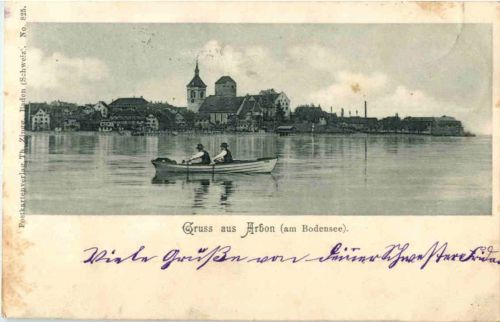 Postkartenverlag Th. Zinggg, Baden (Schweiz). No. 825.
Gruss aus Arbon (am Bodensee).
Viele Grüße von deiner Schwester Frida